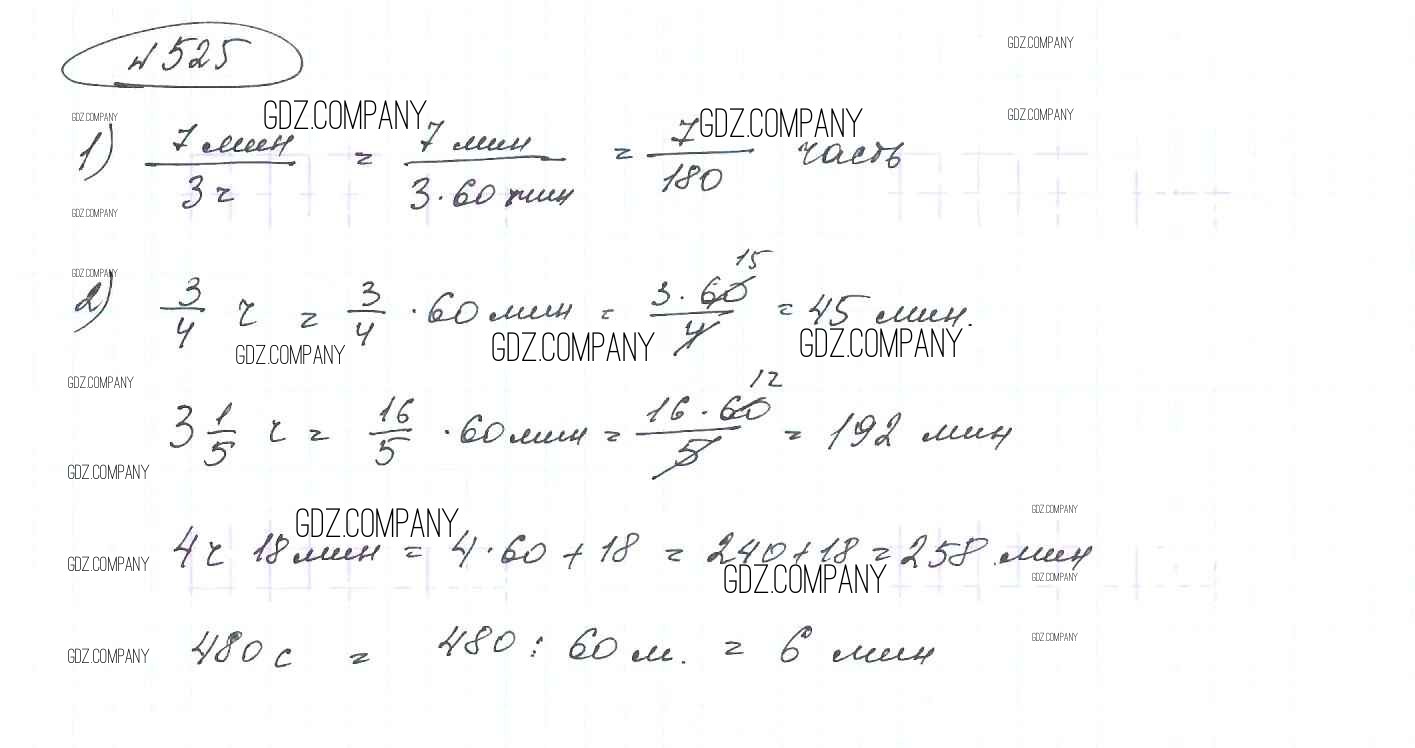 №525
GDZ.COMPANY
GDZ.COMPANY GDZ.COMPANY GDZ.COMPANY GDZ.COMPANY
1) 7 мин / 3 ч = 7 мин / 3 · 60 мин = 7 / 180 часть
GDZ.COMPANY
GDZ.COMPANY
2) 3/4 ч = 3/4 · 60 мин = 3 · 60 / 4 15 = 45 мин.
GDZ.COMPANY GDZ.COMPANY GDZ.COMPANY
GDZ.COMPANY
3 1/5 ч = 16/5 · 60 мин = 16 · 60 / 5 12 = 192 мин
GDZ.COMPANY
GDZ.COMPANY GDZ.COMPANY
4 ч 18 мин = 4 · 60 + 18 = 240 + 18 = 258 мин
GDZ.COMPANY GDZ.COMPANY GDZ.COMPANY
480 с = 480 : 60 м. = 6 мин
GDZ.COMPANY GDZ.COMPANY